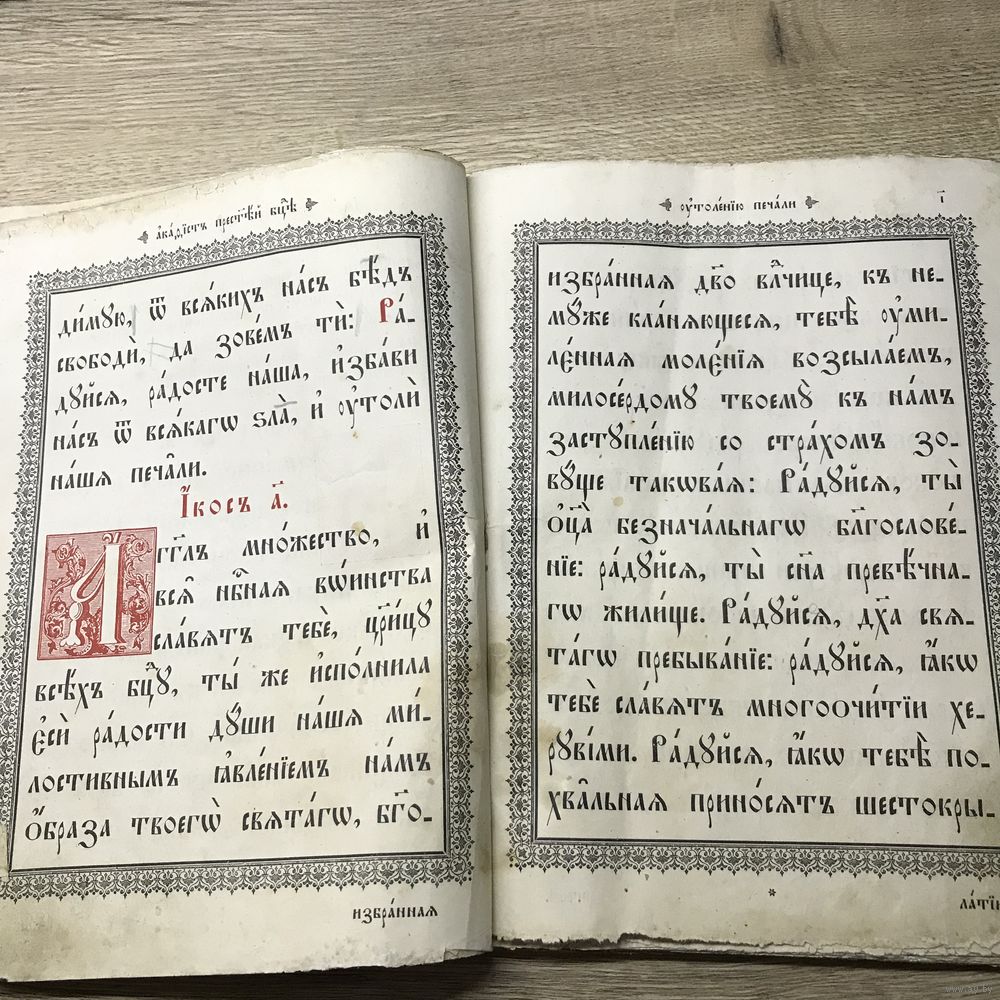 а҆ка́ѳїстъ прест҃ѣ́й бцⷣѣ
ди́мую, ѿ всѧ́кихъ на́съ бѣ́дъ
свободѝ, да зове́мъ тѝ: Ра́-
дꙋйсѧ, ра́досте на́ша, и҆зба́ви
на́съ ѿ всѧ́кагѡ ѕла̀, и҆ ᲂу҆толѝ
на́шѧ печа̑ли.
І҆́косъ а҃.
А҆́гг҃лъ мно́жество, и҆
всѧ̑ нбⷭ҇наѧ вѡ́инства
сла́вѧтъ тебѐ, цр҃и́цꙋ
всѣ́хъ бцⷣꙋ, ты́ же и҆спо́лнила
є҆сѝ ра́дости дꙋ́ши на́шѧ ми́-
лостивнымъ ꙗ҆вле́нїемъ на́мъ
ѻ҆́браза твоегѡ̀ свѧта́гѡ, бг҃о-
избра́ннаѧ
ᲂу҆толе́нїю печа́ли
і҃
избра́ннаѧ дв҃о влⷣчице, къ не-
мꙋ́же кла́нѧющесѧ, тебѣ̀ ᲂу҆ми-
ле́ннаѧ моле́нїѧ возсыла́емъ,
милосе́рдомꙋ твоемꙋ̀ къ на́мъ
застꙋпле́нїю со стра́хомъ зо-
вꙋ́ще такѡва́ѧ: Ра́дꙋйсѧ, ты̀
ѻ҆ц҃а̀ безнача́льнагѡ блг҃ослове́-
нїе: ра́дꙋйсѧ, ты̀ сн҃а превѣ́чна-
гѡ жили́ще. Ра́дꙋйсѧ, дх҃а свѧ-
та́гѡ пребыва́нїе: ра́дꙋйсѧ, ꙗ҆́кѡ
тебѐ сла́вѧтъ многоо҆чи́тїи хе-
рꙋві́ми. Ра́дꙋйсѧ, ꙗ҆́кѡ тебѣ̀ по-
хва̑льнаѧ прино́сѧтъ шестокры-
*